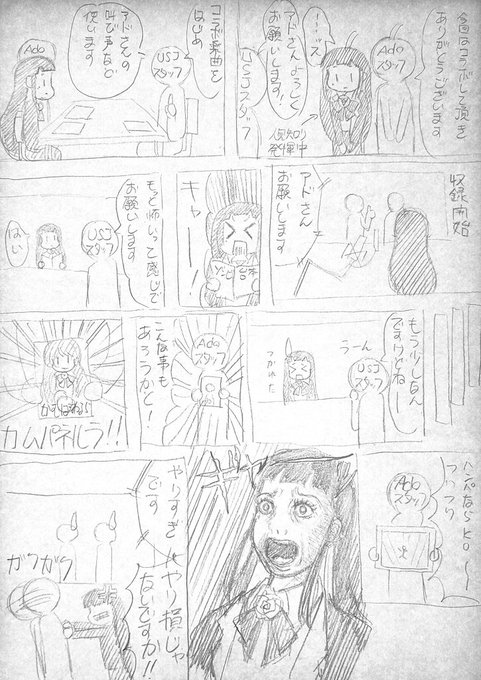 今回はコラボして頂き
ありがとうございます
Ado
スタッフ
アドさんよろしく
お願いします!
USJスタッフ
人見知り
発揮中
コラボ楽曲を
はじめ
USJ
スタッフ
アドさんの
叫び声など
使います
Ado
収録開始
アドさん
お願いします
キャー!
ゾンビ
台本
もっと怖いって感じで
お願いします
USJ
スタッフ
はい
もう少しなん
ですけどねー
うーん
USJ
スタッフ
つかれた
Ado
スタッフ
こんな事も
あろうかと!
カムパネルラ!!
Ado
スタッフ
ギャー
やりすぎ
です
やり損じゃ
ないですか!!
ガクガク